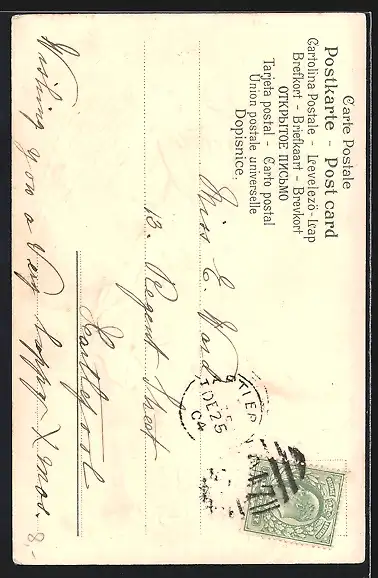 Carte Postale
Postkarte - Post card
Cartolina Postale - Levelező-Lap
Brefkort - Briefkaart - Brevkort
ОТКРЫТОЕ ПИСЬМО
Tarjeta postal - Carto postal
Union postale universelle
Dopisnice.
Miss E. Ward
13. Regent Street
Hartlepool
Wishing you a Very happy Xmas.
DE 25